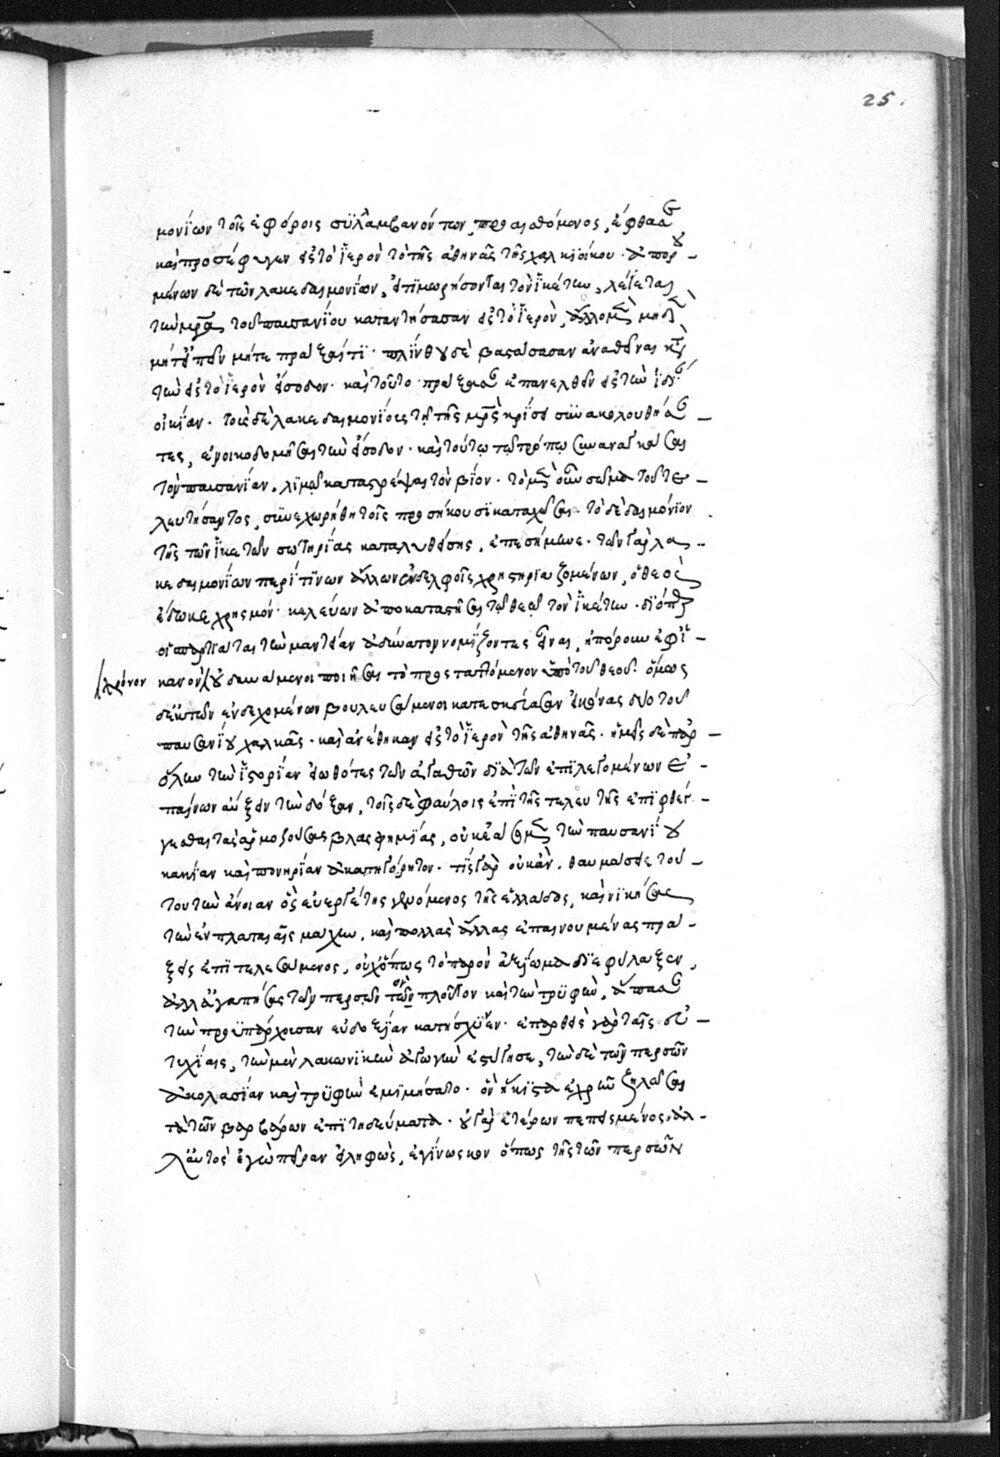 25.
μονίων τοῖς ἐφόροις συλλαμβανόντων, προαισθόμενος, ἔφθασε
καὶ προσέφυγεν εἰς τὸ ἱερὸν τὸ τῆς ἀθηνᾶς τῆς χαλκιοίκου· ἀπορου-
μένων δὲ τῶν λακεδαιμονίων, εἰ τιμωρήσονται τὸν ἱκέτην, λέγεται
τὴν μητέρα τοῦ παυσανίου καταντήσασαν εἰς τὸ ἱερὸν, ἄλλο μὲν μηδὲν
μήτ' εἰπεῖν μήτε πρᾶξαί τι· πλίνθον δὲ βαστάσασαν ἀναθεῖναι κατὰ
τὴν εἰς τὸ ἱερὸν εἴσοδον· καὶ τοῦτο πράξασαν ἐπανελθεῖν εἰς τὴν ἰδίαν
οἰκίαν· τοὺς δὲ λακεδαιμονίους τῇ τῆς μητρὸς κρίσει συνακολουθήσαν-
τες, ἐνοικοδομῆσαι τὴν εἴσοδον· καὶ τούτῳ τῷ τρόπῳ συναναγκάσαι
τὸν παυσανίαν, λιμῷ καταστρέψαι τὸν βίον· τὸ μὲν οὖν σῶμα τοῦ τε-
λευτήσαντος, συνεχωρήθη τοῖς προσήκουσι καταχῶσαι· τὸ δὲ δαιμόνιον
τῆς τῶν ἱκετῶν σωτηρίας καταλυθείσης, ἐπεσήμηνε· τῶν γὰρ λα-
κεδαιμονίων περί τινων ἄλλων ἐν δελφοῖς χρηστηριαζομένων, ὁ θεὸς
ἔδωκε χρησμόν· κελεύων ἀποκαταστῆσαι τῷ θεῷ τὸν ἱκέτην· διόπερ
οἱ σπαρτιᾶται τὴν μαντείαν ἀδύνατον νομίζοντες εἶναι, ἠπόρουν ἐφ' ἱ-
χρόνον κανὸν οὐ δυνάμενοι ποιῆσαι τὸ προσταττόμενον ὑπὸ τοῦ θεοῦ· ὅμως
δ' ἐκ τῶν ἐνδεχομένων βουλευσάμενοι κατεσκεύασαν εἰκόνας δύο τοῦ
παυσανίου χαλκᾶς· καὶ ἀνέθηκαν εἰς τὸ ἱερὸν τῆς ἀθηνᾶς· ἡμεῖς δὲ παρ'
ὅλην τὴν ἱστορίαν εἰωθότες τῶν ἀγαθῶν διὰ τῶν ἐπιλεγομένων ἐ-
παίνων αὔξειν τὴν δόξαν, τοῖς δὲ φαύλοις ἐπὶ τῆς τελευτῆς ἐπιφθέγ-
γεσθαι τὰς ἁρμοζούσας βλασφημίας, οὐκ ἐάσομεν τὴν παυσανίου
κακίαν καὶ πονηρίαν ἀκατηγόρητον· τίς γὰρ οὐκ ἂν, θαυμάσειε τού-
του τὴν ἄνοιαν ὃς εὐεργέτης γενόμενος τῆς ἑλλάδος, καὶ νικήσας
τὴν ἐν πλαταιαῖς μάχην, καὶ πολλὰς ἄλλας ἐπαινουμένας πρά-
ξεις ἐπιτελεσάμενος, οὐχ ὅπως τὸ παρὸν ἀξίωμα διεφύλαξεν,
ἀλλ' ἀγαπήσας τῶν περσῶν τὸν πλοῦτον καὶ τὴν τρυφὴν, ἅπασαν
τὴν προϋπάρχουσαν εὐδοξίαν κατῄσχυνεν· ἐπαρθεὶς γὰρ ταῖς εὐ-
τυχίαις, τὴν μὲν λακωνικὴν ἀγωγὴν ἐστύγησε, τὴν δὲ τῶν περσῶν
ἀκολασίαν καὶ τρυφὴν ἐμιμήσατο· ὃν ἥκιστα ἐχρῆν ζηλῶσαι
τὰ τῶν βαρβάρων ἐπιτηδεύματα· οὐ γὰρ ἑτέρων πεπυσμένος, ἀλ-
λ' αὐτὸς ἔργῳ πεῖραν εἰληφὼς, ἐγίνωσκεν ὅπως τῆς τῶν περσῶν